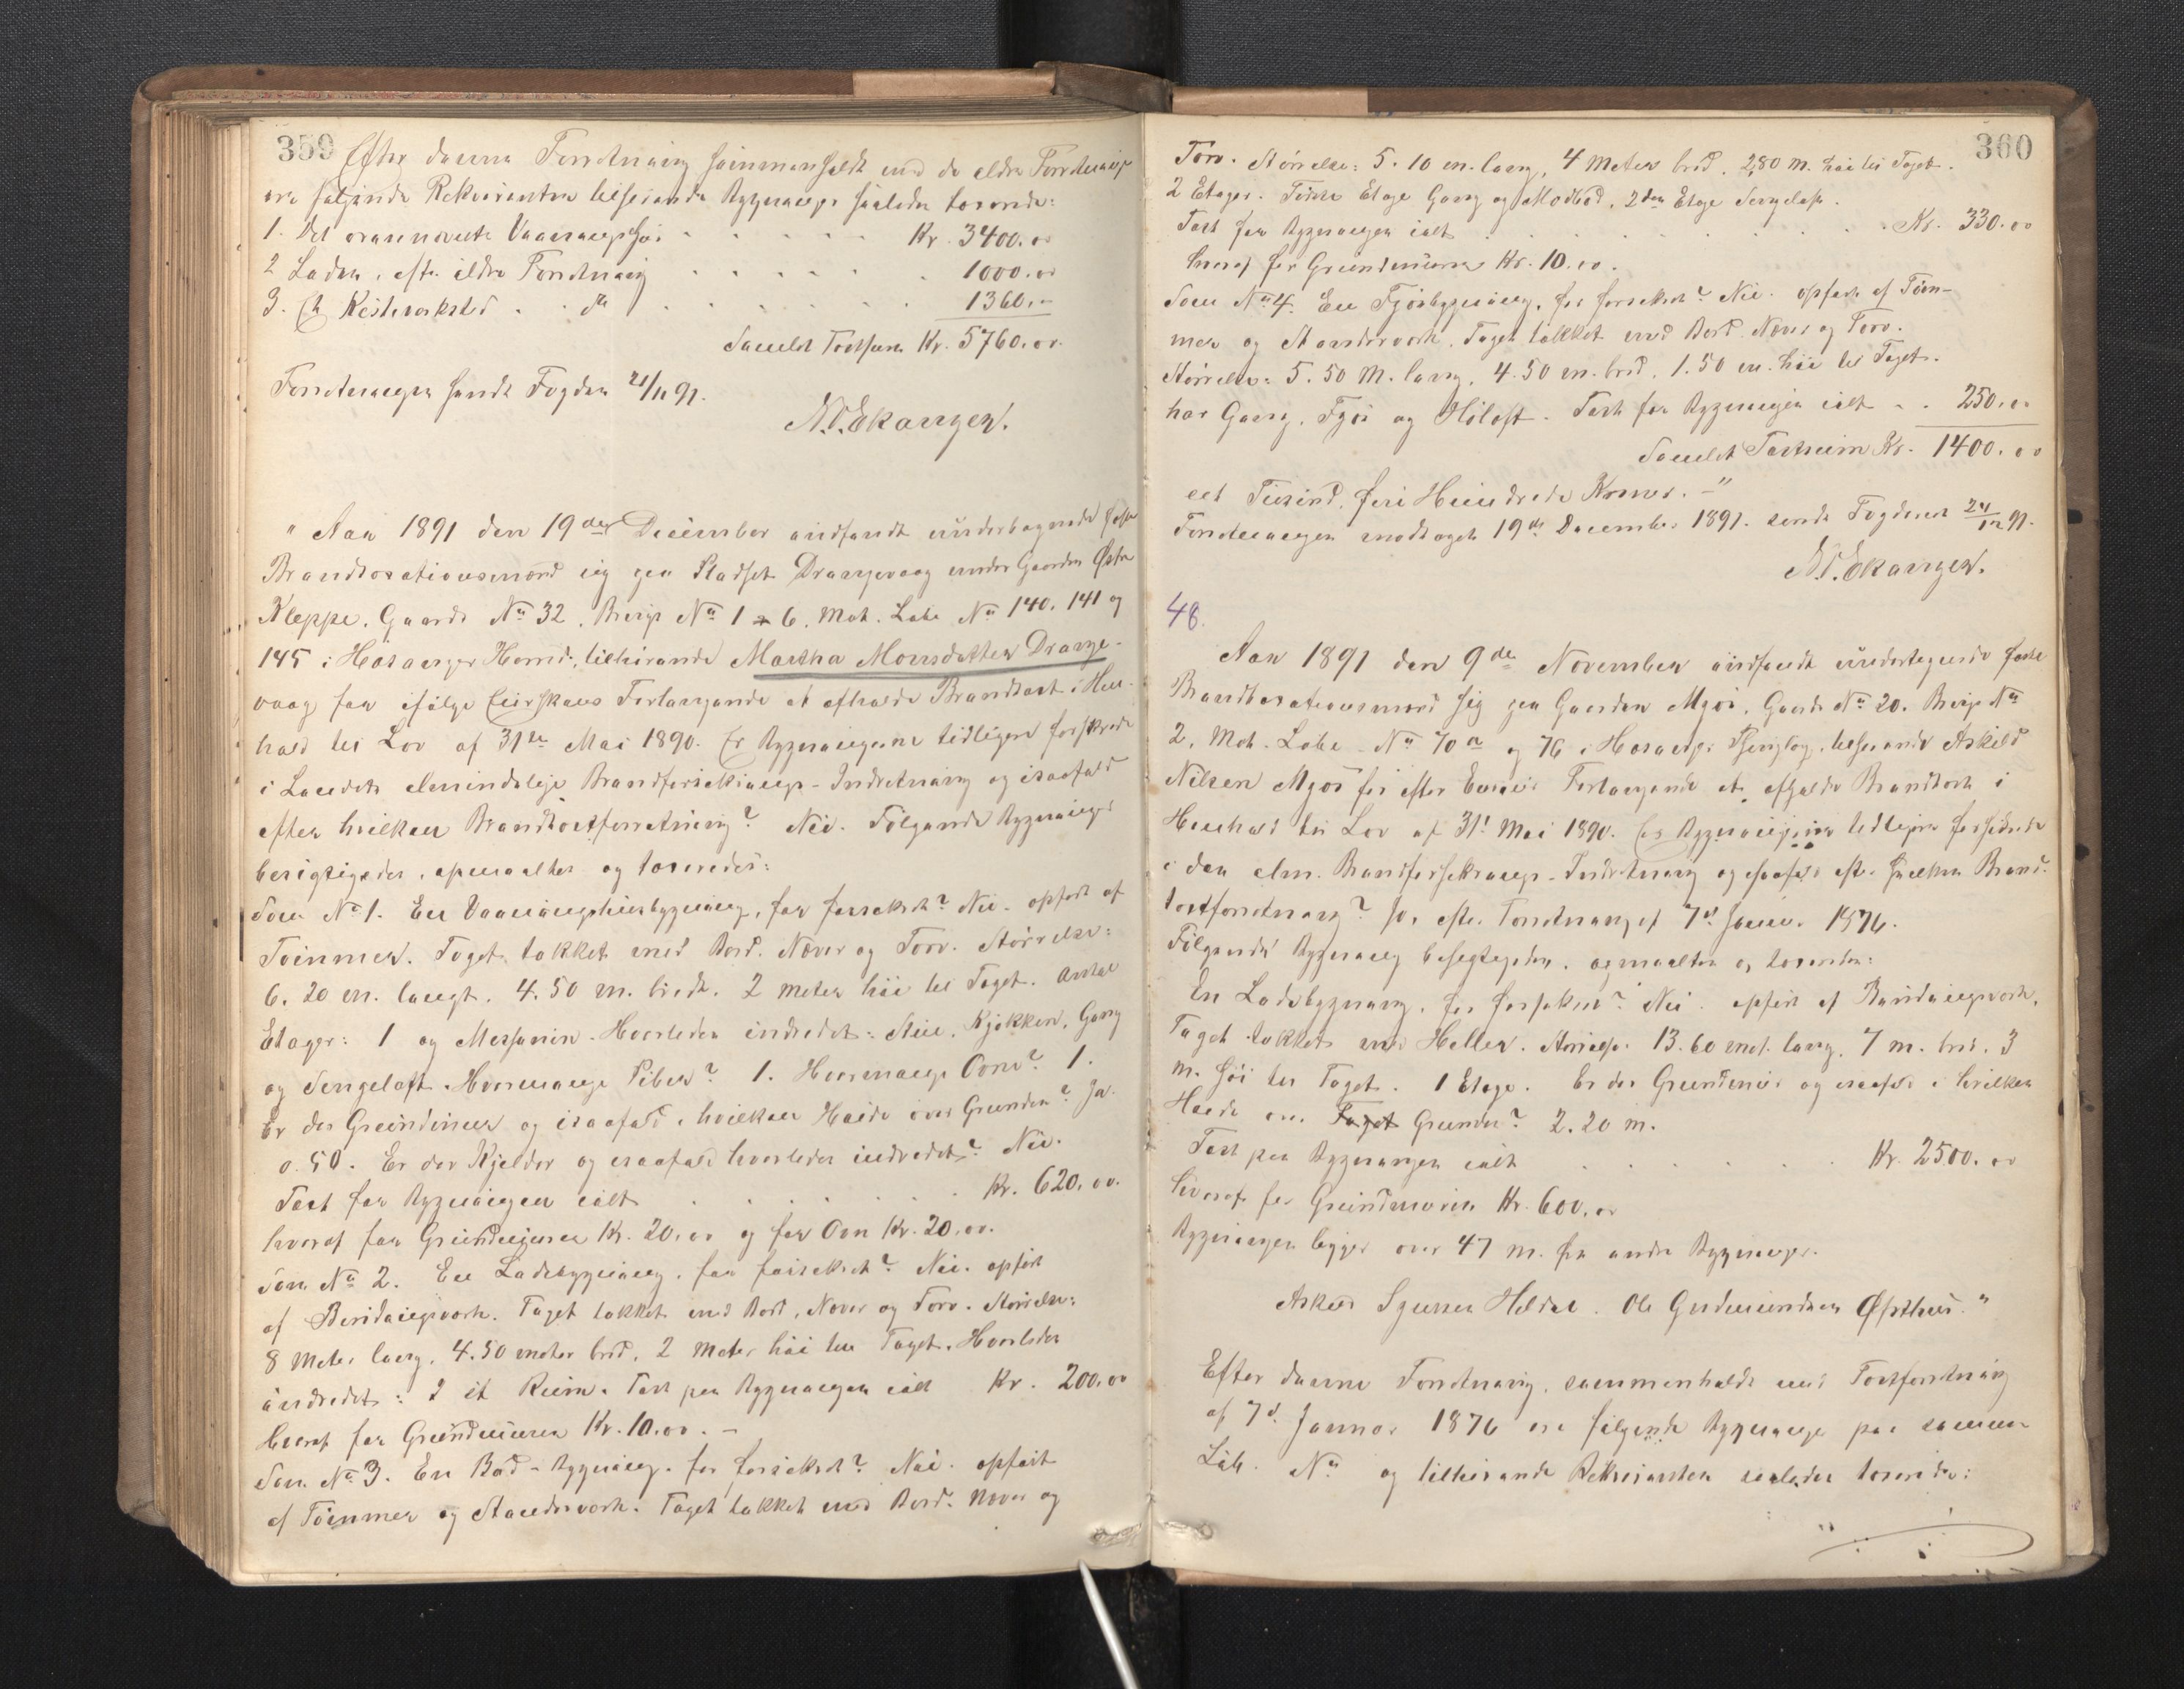 359
Efter denne Forretning sammenholdt med de eldre Forretninger
ere følgende Rekvirenten tilhørende Bygninger saaledes taxerede:
1. Det ovennævnte Vaaningshus Kr. 3400.00
2 Laden, eft. eldre Forretning 1000.00
3. Et Kværkested do 1360.-
Samlet Taxtsum Kr. 5760.00.
Forretningen sendt Fogden 21/11 91.
N.O. Ekanger.
"Aar 1891 den 19de December indfandt undertegnede faste
Brandtaxationsmænd sig paa Pladset Drangevaag under Gaarden Østre
Kleppe, Gaards No 32, Brugs No 1 a 6, Mat. Løbe No 140, 141 og
145 i Hosanger Herred, tilhørende Martha Monsdatter Drange-
vaag for ifølge hendes Forlangende at afholde Brandtaxt i Hen-
hold til Lov af 31te Mai 1890. Er Bygningerne tidligere forsikrede
i Landets almindelige Brandforsikrings-Indretning og isaafald
efter hvilken Brandtaxtforretning? Nei. Følgende Bygninger
besigtigedes, opmaaltes og taxeredes:
Som No 1. En Vaaningshusbygning, før forsikret? Nei. opført af
Tømmer. Taget takket med Bord, Næver og Torv. Størrelse:
6.20 m. langt, 4.50 m. bredt, 2 meter høi til Taget. Antal
Etager: 1 og Messanin. Hvorledes indredet: Stue, Kjøkken, Gang
og Sengeloft. Hvormange Piber? 1. Hvormange Ovne? 1.
Er der Grundmur og isaafald i hvilken Høide over Grunden? Ja.
0.50. Er der Kjelder og isaafald hvorledes indredet? Nei.
Taxt for Bygningen ialt Kr. 620.00.
hvoraf for Grundmuren Kr. 20.00 og for Ovn Kr. 20.00.
Som No 2. En Ladebygning, før forsikret? Nei. opført
af Bindingsværk. Taget takket med Bord, Næver og Torv. Størrelse:
8 Meter lang, 4.50 meter bred, 2 Meter høi til Taget. Hvorledes
indredet: I et Rum. Taxt paa Bygningen ialt Kr. 200.00
hvoraf for Grundmuren Kr. 10.00.-
Som No 3. En Bod-Bygning, før forsikret? Nei. opført
af Tømmer og Standerværk. Taget takket med Bord. Næver og
360
Torv. Størrelse: 5.10 m. lang, 4 Meter bred, 2,80 m. høi til Taget.
2 Etager. Første Etage Gang og Madbod, 2den Etage Sengeloft.
Taxt for Bygningen ialt Kr. 330.00
hvoraf for Grundmuren Kr. 10.00.
Som No 4. En Fjøsbygning, før forsikret? Nei. opført af Tøm-
mer og Standerværk. Taget takket med Bord Næver og Torv.
Størrelse: 5.50 M. lang, 4.50 m. bred, 1.50 m. høi til Taget.
har Gang, Fjøs og Høloft. Taxt for Bygningen ialt 250.00
Samlet Taxtsum Kr. 1400.00
et Tusind, fire Hundrede Kroner.-"
Forretningen modtaget 19de December 1891. sendt Fogderiet 24/12 91.
N.O. Ekanger.
48.
Aar 1891 den 9de November indfandt undertegnede faste
Brandtaxationsmænd sig paa Gaarden Mjøs, Gaards No 20, Brugs No
2, Mat. Løbe No 70a og 76 i Hosanger Thinglag, tilhørende Askild
Nilsen Mjøs for efter Eierens Forlangende at afholde Brandtaxt i
Henhold til Lov af 31! Mai 1890. Er Bygningerne tidligere forsikrede
i den alm. Brandforsikrings-Indretning og isaafald eft. hvilken Brand-
taxtforretning? Ja, efter Forretning af 7d Januar 1876.
Følgende Bygning besigtigedes, opmaaltes og taxeredes:
En Ladebygning, før forsikret? Nei. opført af Bindingsværk,
Taget takket med Heller. Størrelse 13.60 met. lang, 7 m. bred, 3
m. høi til Taget. 1 Etage. Er der Grundmur og isaafald i hvilken
Høide over Taget Grunden? 2.20 m.
Taxt paa Bygningen ialt Kr. 2500.00
hvoraf for Grundmuren Kr. 600.00
Bygningen ligger over 47 m. fra andre Bygninger.
Askild Hilder. Ole Gudmundsen Østhus."
Efter denne Forretning, sammenholdt med Taxtforretning
af 7d. Januar 1876 ere følgende Bygninger paa samme
Løb. No og tilhørende Rekvirenten saaledes taxerede: